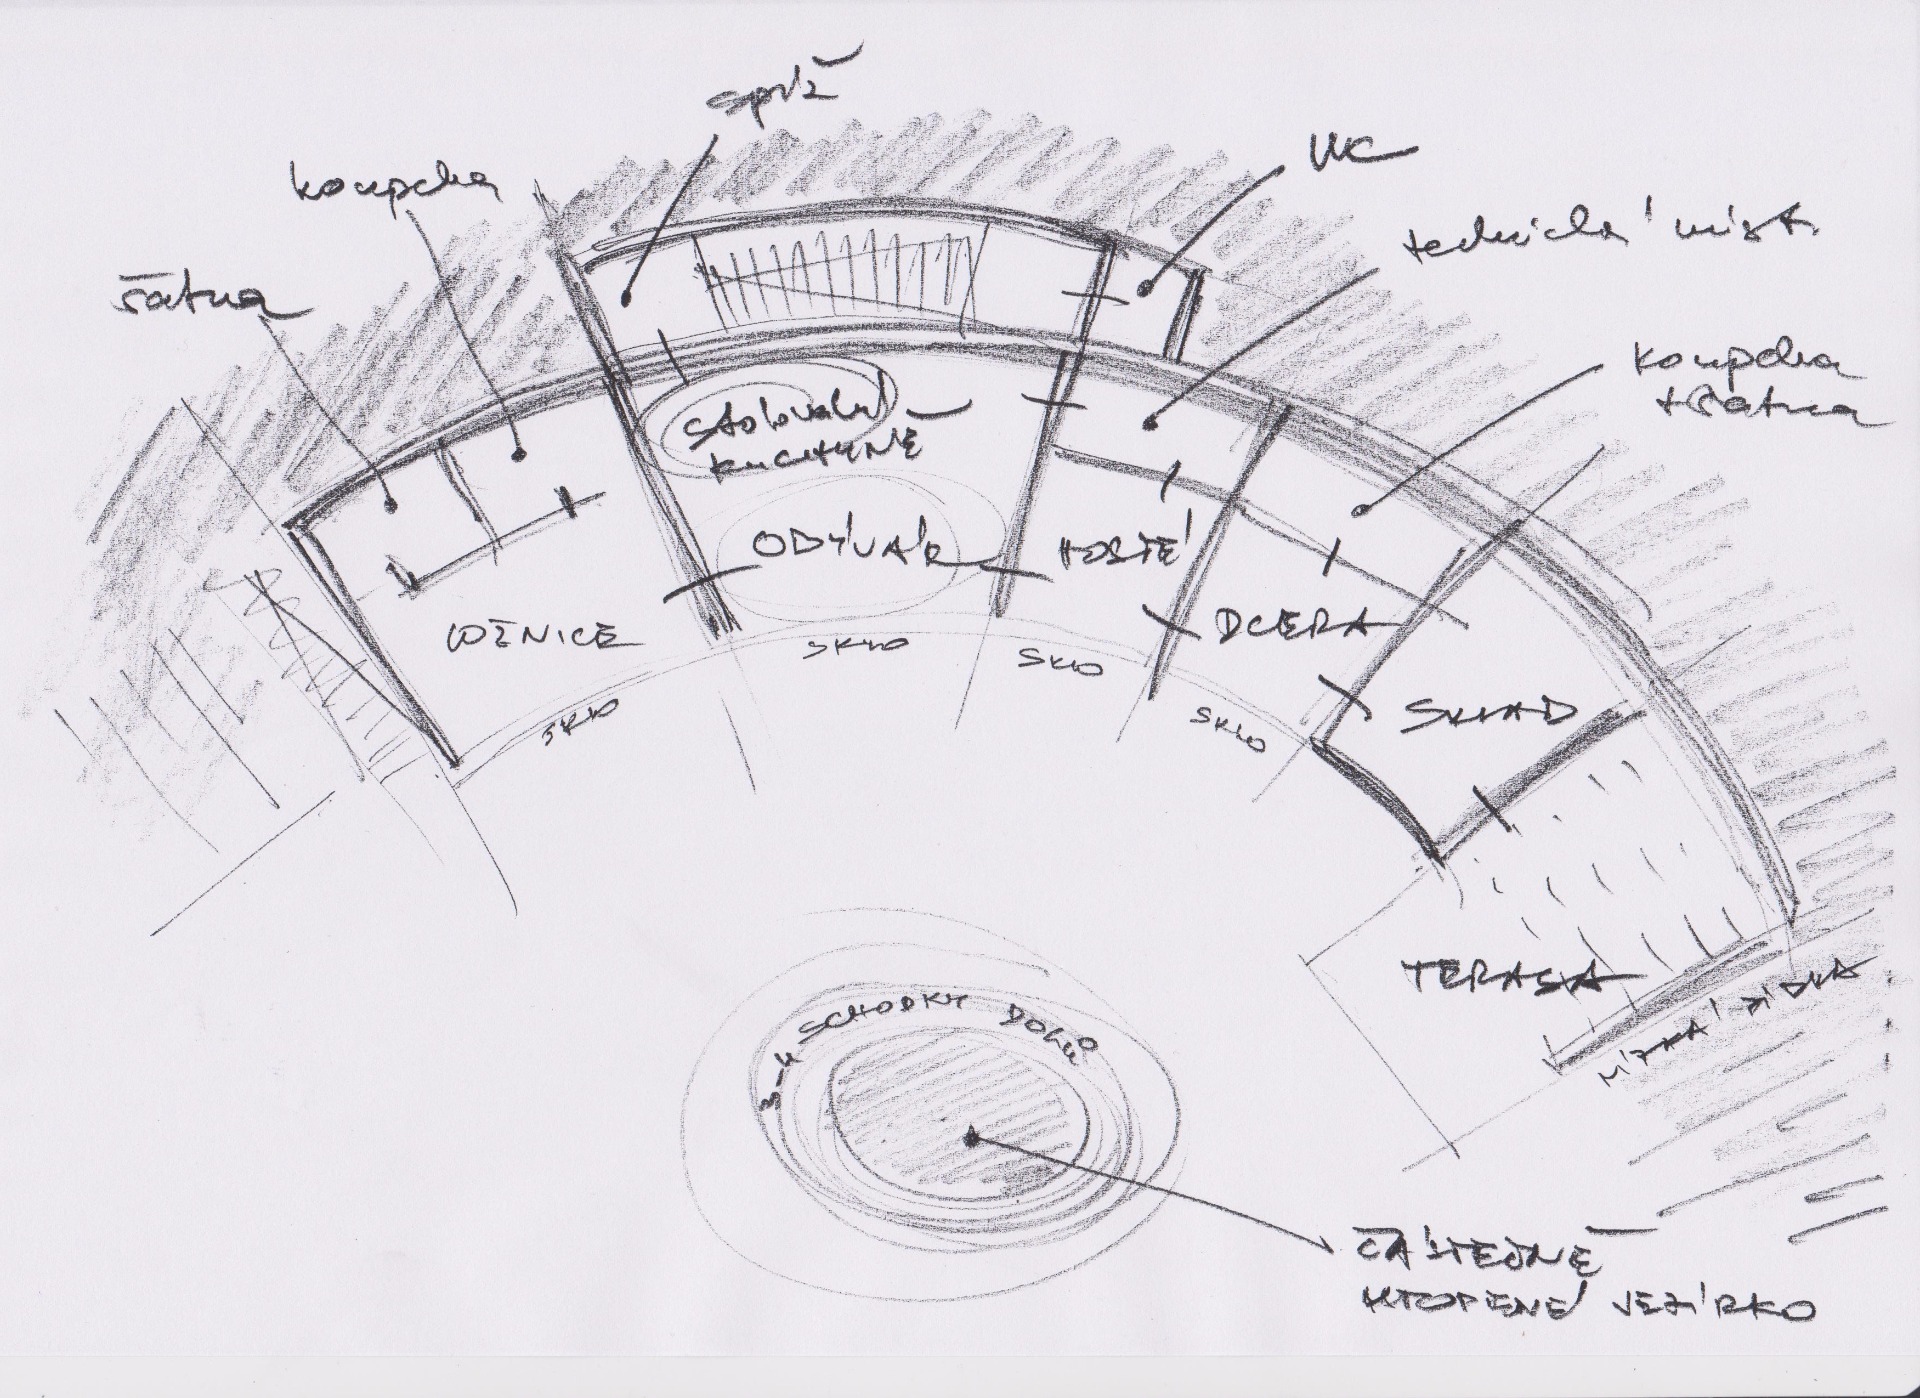 spíž
koupelna
WC
šatna
technická míst.
koupelna
+ šatna
stolování
KUCHYNĚ
OBÝVÁK
HOSTÉ
LOŽNICE
DCERA
SKLAD
SKLO
SKLO
SKLO
SKLO
TERASA
NÍZKÁ ZÍDKA
3-4 SCHODKY DOLŮ
ČÁSTEČNĚ
UTOPENÉ JEZÍRKO